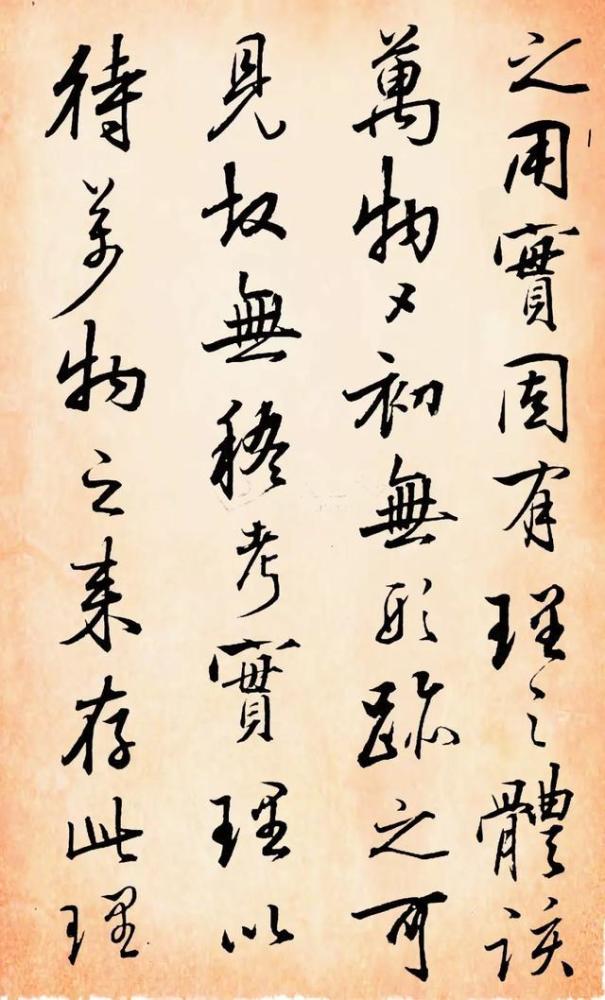 之用實固有理之體該
萬物々初無形跡之可
見故無稽考實理以
待萬物之来存此理